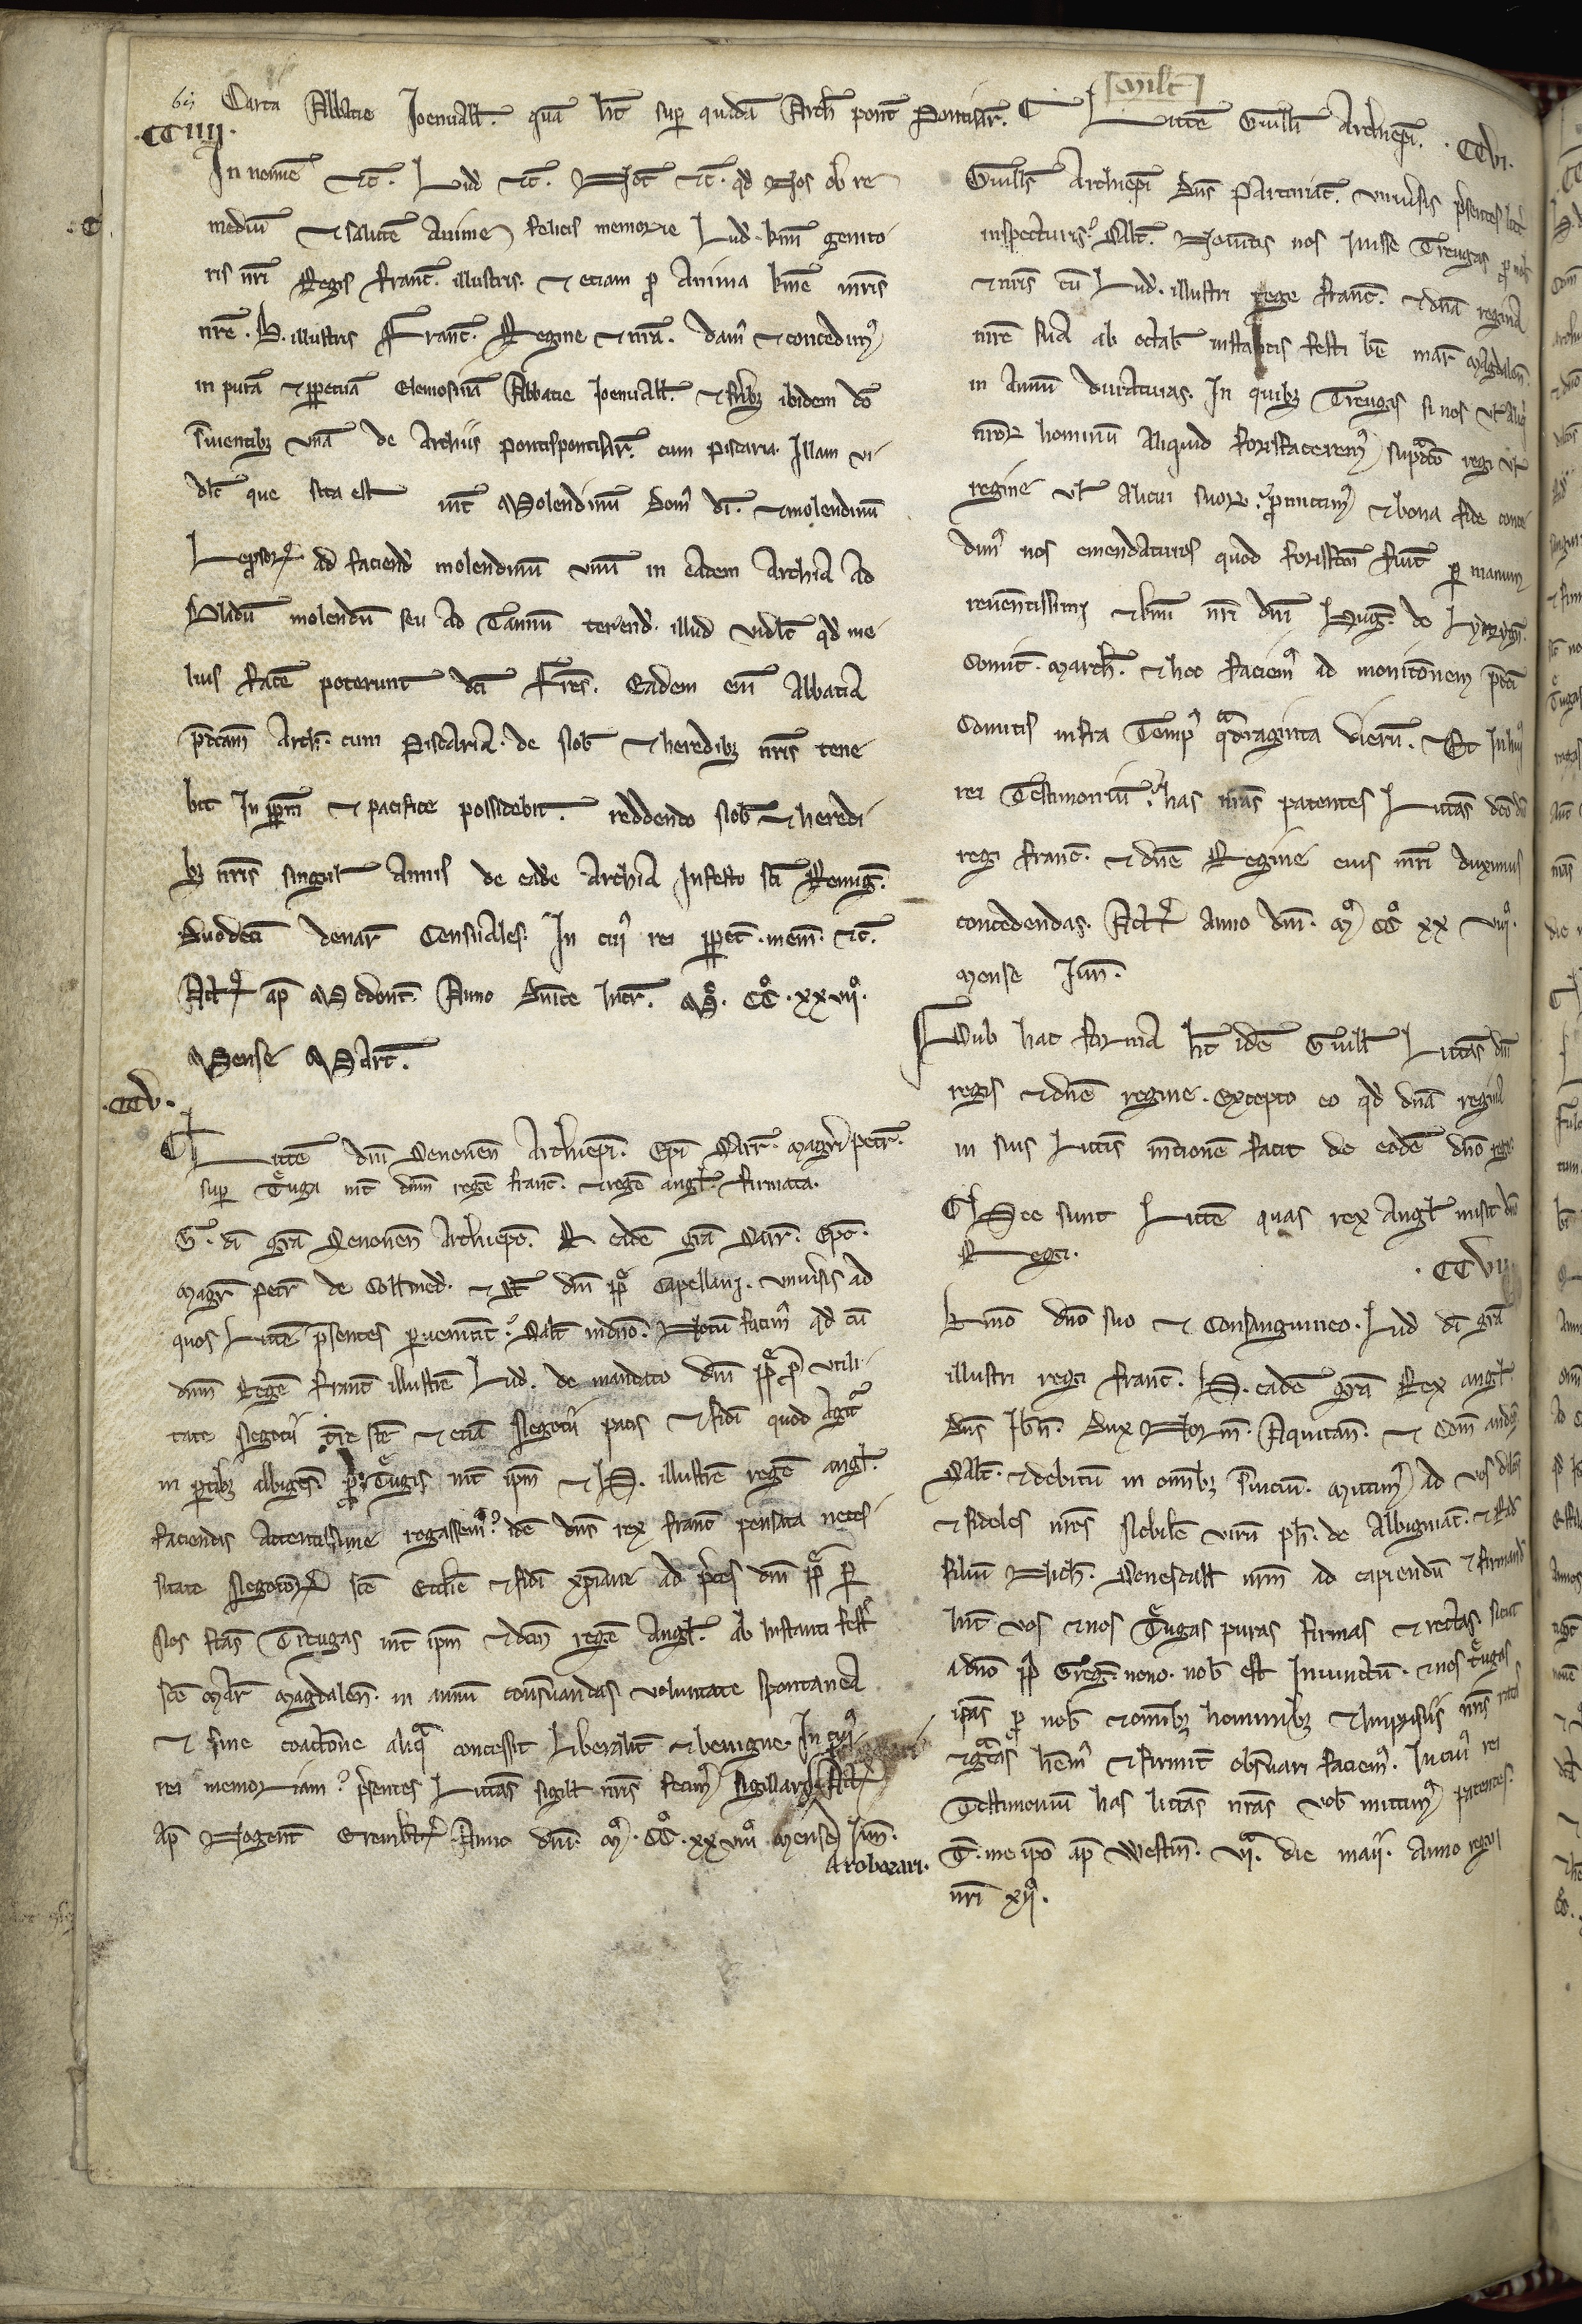 Carta Abbatie Joeuiall̃. quã hɫt sup̱ quadã Arch̃ pont̃ Pontisar̃.
.CCIIII.
In noie ⁊c̃. Lud̃ ⁊c̃. Not̃ ⁊c̃. qd̃ Nos ob re
mediũ ⁊ salutẽ Anime felicis memorie Lud̃. kmĩ genito
ris nrĩ Regis franc̃. illustris. ⁊ etiam p̱ Anima kmẽ mrĩs
nrẽ. B. illustris Franc̃. Regine ⁊ nrã. damꝰ ⁊ concedimꝰ
in purã ⁊ pp̱etuã Elemosinã Abbatie Joeuiall̃. ⁊ frĩbꝫ ibidem dõ
s̃uientibꝫ vnã de Archiis pontispontisar̃. cum piscaria. Illam vi
dɫt que sita est int̃ Molendinũ Domꝰ dĩ. ⁊ molendinũ
Lep̱sorꝝ ad faciend̃ molendinũ vnũ in eadem Archia ad
Bladũ molendũ seu ad Tannũ terend̃. illud vidɫt qd̃ me
lius facẽ poterunt dc̃i Frẽs. Eadem eñ Abbatia
p̃dc̃am Arch̃. cum piscaria. de Nob̃ ⁊ heredibꝫ nrĩs tene
bit In pp̱m̃ ⁊ pacifice possidebit. reddendo Nob̃ ⁊ heredi
bꝫ nrĩs singul̃ Annis de eadẽ Archia In festo sc̃i Remig̃.
Duodecĩ denar̃ Censuales. In cuiꝰ rei pp̱et̃. mem̃. ⁊c̃.
Act̃ ap̃ Medont̃. Anno Dnĩce Incar̃. M̊. CC̊. xxvııı̊.
Mense Mart̃.
.CCV.
Littẽ dnĩ Senonen̄ Archiepĩ. Epĩ Carn̄. magrĩ petr̃.
sup̱ Treuga int̃ dnm̃ regẽ franc̃. ⁊ regẽ angl̃. firmata.
G. dĩ grã Senonen̄ Archiepc̃. ⁊ eadẽ grã Carn̄. Epc̃.
magr̃ petr̃ de Collmed̃. dnĩ pp̱ Capellani. vniũsis ad
quos Littẽ p̃sentes p̱uenerint. Salt̃ in dnõ. Notũ facimꝰ qd̃ cũ
dnm̃ Regẽ franc̃ illustrẽ Lud̃. de mandato dnĩ pp̱ p̱ vtili
tate Negotii tr̃e sc̃e ⁊ etiã Negotii pacis ⁊ fidĩ quod agit̃
in p̱tibꝫ albigeñ. p̱ Treugis int̃ ip̃m ⁊ H. illustrẽ regẽ angl̃.
faciendis Attentissime rogassemꝰ. idẽ dns̃ rex franc̃ pensata neces
sitate Negotiorꝝ sc̃e Ecc̃lie ⁊ fidĩ xp̃iane ad p̃ces dnĩ pp̱ p̱
Nos fc̃as Treugas int̃ ip̃m ⁊ dc̃m regẽ Angl̃. ab Instanti festo
sc̃e Mar̃ Magdalen̄. in annũ cons̃uandas voluntate spontanea
⁊ sine coactõne aliq̃ concessit Liberalit̃ ⁊ benigne. In cuiꝰ
rei memoriam p̃sentes Littãs sigill̃ nrĩs fecimꝰ sigillari. Act̃
Ap̃ Nogent̃ Eremb̃t̃. Anno dnĩ. M̊. CC̊. xxvııı̊. Mense Jun̄.
Aroborari.
Guill̃
Littẽ Guill̃ Archiepĩ. .CCVI.
Guill̃s Archiepĩ Dns̃ Partiniac̃. vniũsis p̃sentes Litt̃
inspecturis. Salt̃. Noũitis nos Iniisse Treugas p̱ nob̃
⁊ nrĩs cũ Lud̃. illustri rege franc̃. ⁊ dnã regina
mrẽ sua ab octab̃ instantis festi bẽ mar̃ Magdalen̄
in Annũ duraturas. In quibꝫ Treugis si nos vl̃ aliqs̃
nrõrꝝ hominũ Aliquid forisfaceremꝰ sup̱dc̃o regi vl̃
regine vl̃ alicui suorꝝ. p̱mittimꝰ ⁊ bona fide conce
dimꝰ nos emendaturos quod forisfc̃m fũit p̱ manum
reuẽntissimi ⁊ kmĩ nrĩ dnĩ Hug̃. de Lyzygñ.
Comit̃. March̃. ⁊ hoc faciemꝰ ad monitõnem p̃dc̃i
Comitis infra Tempꝰ q̃draginta dierũ. Et In huiꝰ
rei Testimoniũ. has nrãs patentes Littãs dc̃o dnõ
regi franc̃. ⁊ dnẽ Regine eius mrĩ duximus
concedendas. Act̃ Anno dnĩ. M̊ CC̊ xx vııı̊.
Mense Jun̄.
Sub hac forma hɫt idẽ Guill̃ Littãs dnĩ
regis ⁊ dnẽ regine. excepto eo qd̃ dnã regina
in suis Littĩs mc̃ionẽ facit de eodẽ dnõ rege.
Hee sunt Littẽ quas rex Angl̃ misit dnõ
Regi. .CCVII.
Kmõ dnõ suo ⁊ Consanguineo. Lud̃ dĩ grã
illustri regi franc̃. H. eadẽ grã Rex angl̃.
Dns̃ Ib̃n. Dux Norm̃. Aquitañ. ⁊ Com̃ andeg̃.
Salt̃. ⁊ debitũ in omĩbꝫ s̃uiciũ. Mittimꝰ ad vos dil̃cos
⁊ fideles nrõs Nobilẽ virũ ph̃. de Albigniac̃. ⁊ Rad̃
filiũ Nich̃. Senescall̃ nrm̃ ad capiendũ ⁊ firmand̃
Int̃ vos ⁊ nos Treugas puras firmas ⁊ rectas. sicut
a dnõ pp̱ Greg̃. nono. nob̃ est Iniunctũ. ⁊ nos treugas
ip̃as p̱ nob̃ ⁊ omĩbꝫ hominibꝫ ⁊ Imprisiis nrĩs ratas
⁊ gr̃as hẽmꝰ ⁊ firmit̃ obs̃uari faciemꝰ. In cuiꝰ rei
Testimoniũ has littãs nrãs vob̃ mittimꝰ patentes.
T̃. me ip̃o ap̃ Westm̃. vıı̊. die maii. Anno regni
nrĩ xıı̊.